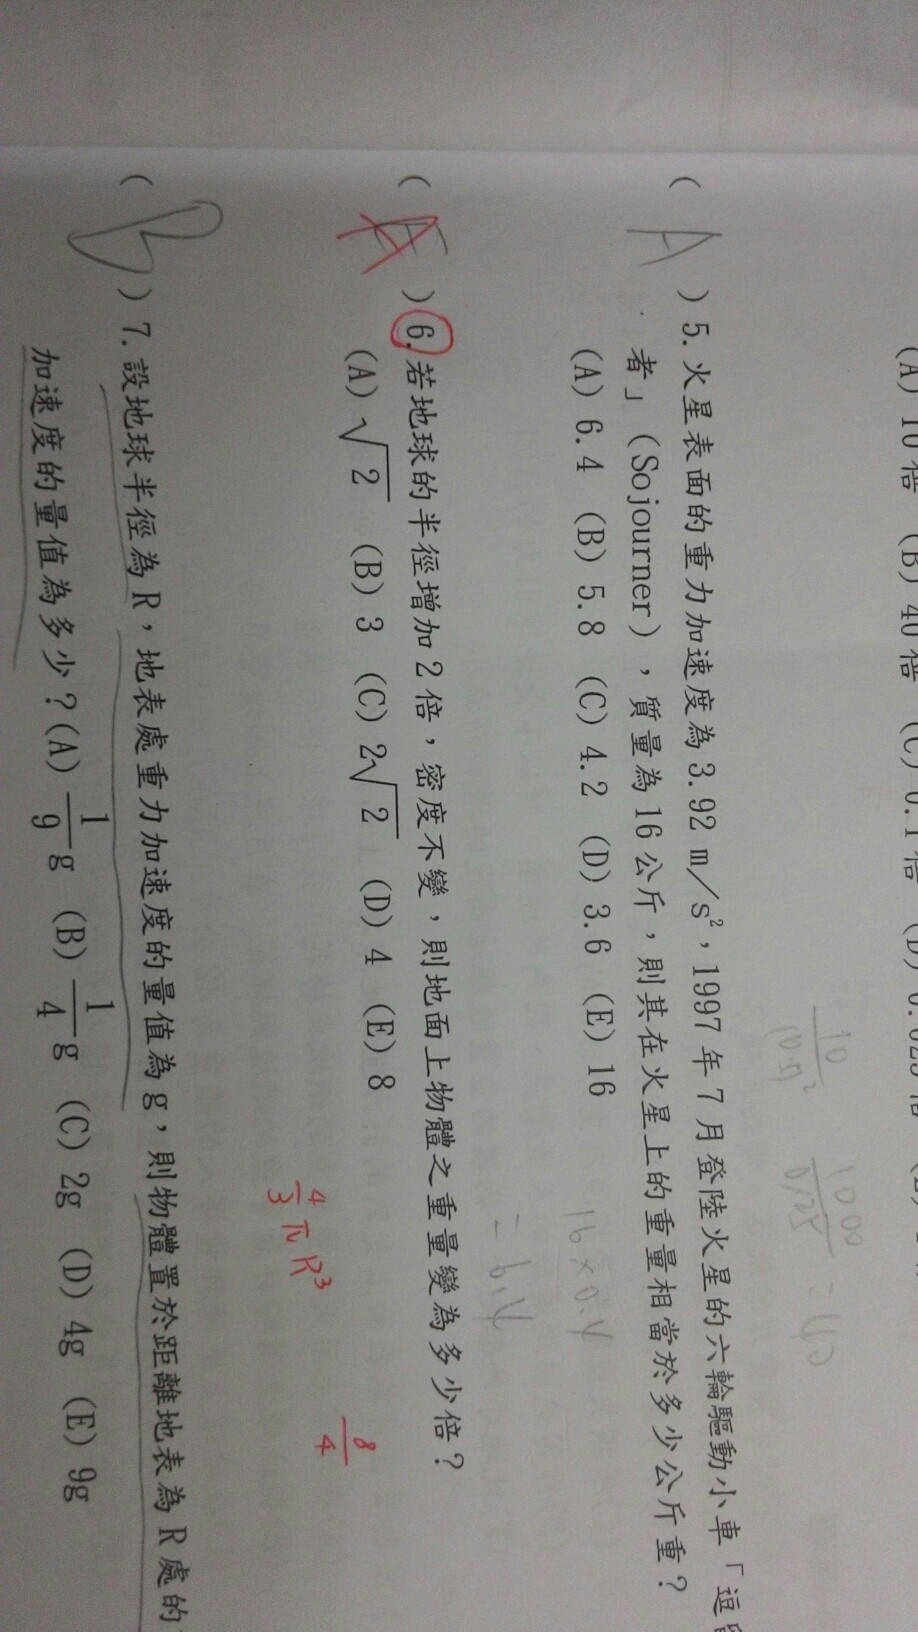 (A) 10倍 (B) 40倍 (C) 0.1倍 (D) 0.025倍
10
1000
/0.25 = 40
( A ) 5. 火星表面的重力加速度為 3.92 m/s²，1997 年 7 月登陸火星的六輪驅動小車「逗留
者」(Sojourner)，質量為 16 公斤，則其在火星上的重量相當於多少公斤重？
(A) 6.4 (B) 5.8 (C) 4.2 (D) 3.6 (E) 16
16×0.4
= 6.4
( ) 6. 若地球的半徑增加 2 倍，密度不變，則地面上物體之重量變為多少倍？
(A) √2 (B) 3 (C) 2√2 (D) 4 (E) 8
8/4
4/3 π R³
( B ) 7. 設地球半徑為 R，地表處重力加速度的量值為 g，則物體置於距離地表為 R 處的
加速度的量值為多少？(A) 1/9 g (B) 1/4 g (C) 2g (D) 4g (E) 9g